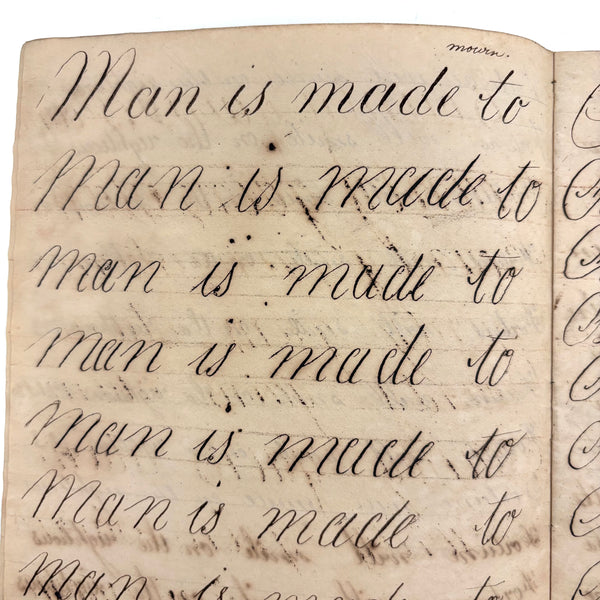 mourn.
Man is made to
man is made to
man is made to
man is made to
man is made to
Man is made to
man is made to